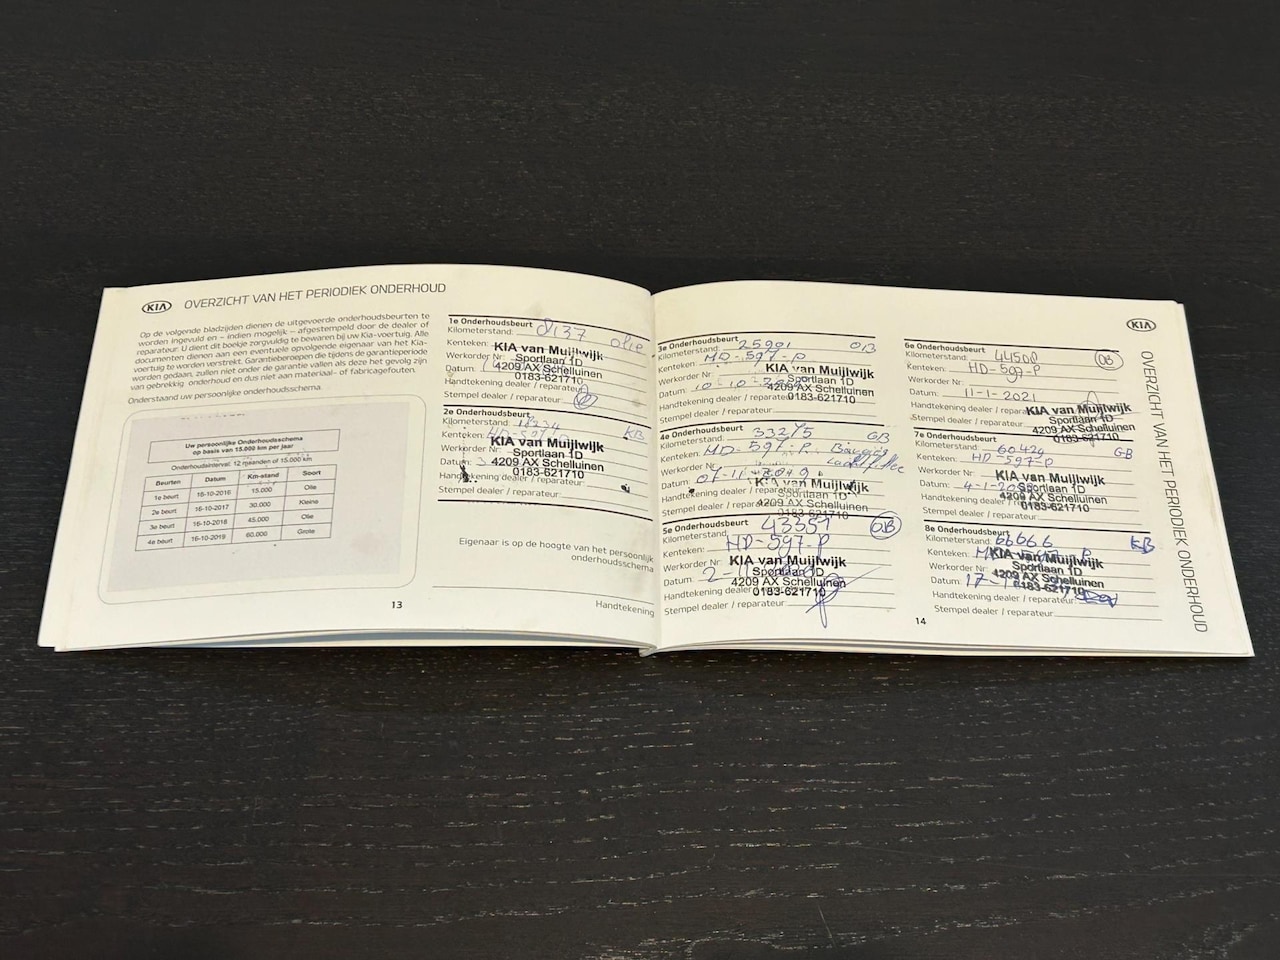 KIA OVERZICHT VAN HET PERIODIEK ONDERHOUD
Op de volgende bladzijden dienen de uitgevoerde onderhoudsbeurten te
worden ingevuld en – indien mogelijk – afgestempeld door de dealer of
reparateur. U dient dit boekje zorgvuldig te bewaren bij uw Kia-voertuig. Alle
documenten dienen aan een eventuele opvolgende eigenaar van het Kia-
voertuig te worden verstrekt. Garantieberoepen die tijdens de garantieperiode
worden gedaan, zullen niet onder de garantie vallen als deze het gevolg zijn
van gebrekkig onderhoud en dus niet aan materiaal- of fabricagefouten.
Onderstaand uw persoonlijke onderhoudsschema
Uw persoonlijke Onderhoudsschema
op basis van 15.000 km per jaar
Onderhoudsinterval: 12 maanden of 15.000 km
Beurten Datum Km-stand Soort
1e beurt 16-10-2016 15.000 Olie
2e beurt 16-10-2017 30.000 Kleine
3e beurt 16-10-2018 45.000 Olie
4e beurt 16-10-2019 60.000 Grote
13
1e Onderhoudsbeurt
Kilometerstand: 8137 olie
Kenteken:
KIA van Muijlwijk
Sportlaan 1D
Werkorder Nr
4209 AX Schelluinen
Datum:
0183-621710
Handtekening dealer / reparateur
Stempel dealer / reparateur:
2e Onderhoudsbeurt
Kilometerstand: KB
Kenteken:
KIA van Muijlwijk
Sportlaan 1D
Werkorder Nr
4209 AX Schelluinen
Datum:
0183-621710
Handtekening dealer / reparateur:
Stempel dealer / reparateur:
Eigenaar is op de hoogte van het persoonlijk
onderhoudsschema
Handtekening
3e Onderhoudsbeurt
Kilometerstand: 25901 OB
Kenteken: HD-597-P
KIA van Muijlwijk
Werkorder Nr
Sportlaan 1D
Datum: 10-10-
4209 AX Schelluinen
0183-621710
Handtekening dealer / reparateur
Stempel dealer / reparateur:
4e Onderhoudsbeurt
Kilometerstand: 33275 GB
Kenteken: HD-597-P
Werkorder Nr
Datum: 07-11-2019
KIA van Muijlwijk
Sportlaan 1D
Handtekening dealer / reparateur
4209 AX Schelluinen
Stempel dealer / reparateur
0183-621710
5e Onderhoudsbeurt
Kilometerstand: 43357 OB
Kenteken: HD-597-P
Werkorder Nr
KIA van Muijlwijk
Sportlaan 1D
Datum: 2-11-
4209 AX Schelluinen
Handtekening dealer
0183-621710
Stempel dealer / reparateur:
14
KIA
6e Onderhoudsbeurt
Kilometerstand: 44508 OB
Kenteken: HD-597-P
Werkorder Nr
Datum: 11-1-2021
Handtekening dealer / repara
KIA van Muijlwijk
Sportlaan 1D
Stempel dealer / reparateur
4209 AX Schelluinen
0183-621710
7e Onderhoudsbeurt
Kilometerstand: 60429 GB
Kenteken: HD-597-P
Werkorder Nr
KIA van Muijlwijk
Datum: 4-1-
Sportlaan 1D
Handtekening dealer
4209 AX Schelluinen
Stempel dealer / reparateur
0183-621710
8e Onderhoudsbeurt
Kilometerstand: 66666 KB
Kenteken:
KIA van Muijlwijk
Werkorder Nr
Sportlaan 1D
Datum: 17-
4209 AX Schelluinen
0183-621710
Handtekening dealer / reparateur
Stempel dealer / reparateur:
OVERZICHT VAN HET PERIODIEK ONDERHOUD